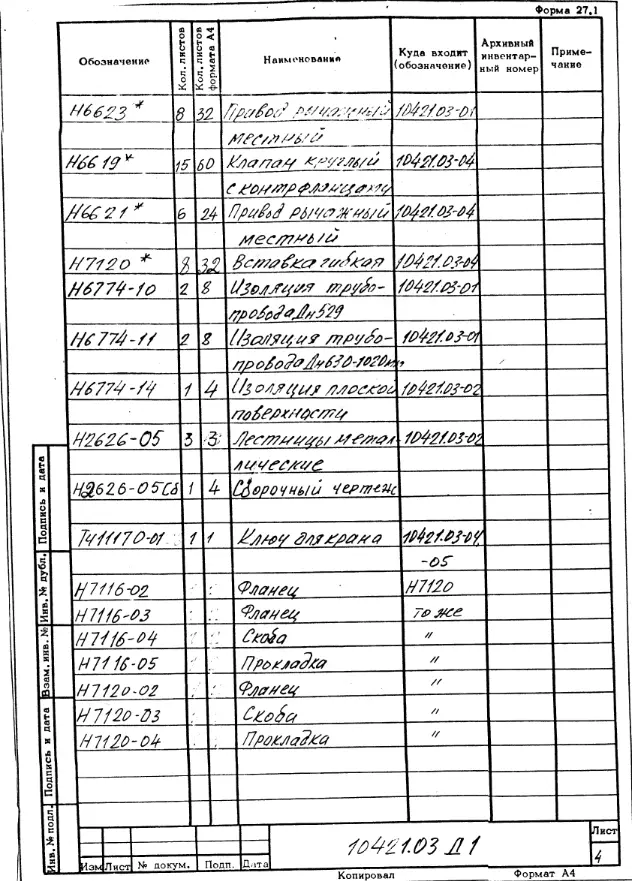 Форма 27.1
Обозначение Кол. листов Кол. листов формата А4 Наименование Куда входит (обозначение) Архивный инвентарный номер Примечание
Н6623* 8 32 Привод рычажный 10421.03-01
местный
Н6619* 15 60 Клапан круглый 10421.03-04
с контрфланцами
Н6621* 6 24 Привод рычажный 10421.03-04
местный
Н7120* 8 32 Вставка гибкая 10421.03-04
Н6774-10 2 8 Изоляция трубо- 10421.03-01
провода Дн529
Н6774-11 2 8 Изоляция трубо- 10421.03-01
провода Дн630-1020мм
Н6774-14 1 4 Изоляция плоской 10421.03-02
поверхности
Н2626-05 3 3 Лестницы метал- 10421.03-02
лические
Н2626-05Сб 1 4 Сборочный чертеж
Тч11170-01 1 1 Ключ для крана 10421.03-04
-05
Н7116-02 Фланец Н7120
Н7116-03 Фланец то же
Н7116-04 Скоба "
Н7116-05 Прокладка "
Н7120-02 Фланец "
Н7120-03 Скоба "
Н7120-04 Прокладка "
Подпись и дата
Инв. № дубл.
Взам. инв. №
Подпись и дата
Инв. № подл.
10421.03 Д1
Лист
4
Изм Лист № докум. Подп. Дата
Копировал Формат А4